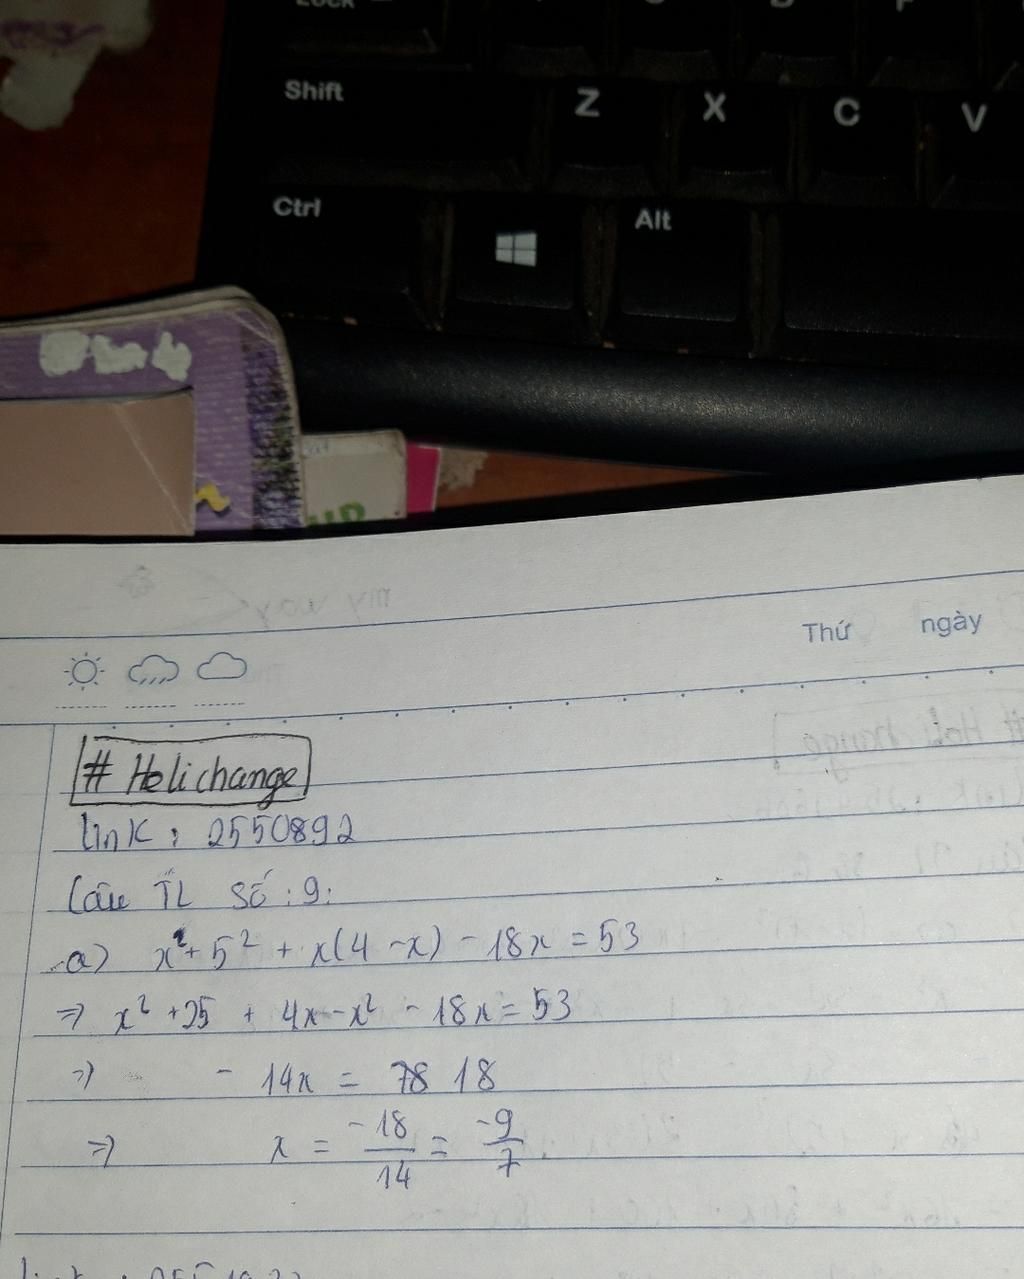 Lock
Shift Z X C V
Ctrl Alt
Thứ ngày
# Helichange
link : 2550892
Câu TL Số : 9 :
a) x² + 5² + x(4 - x) - 18x = 53
=> x² + 25 + 4x - x² - 18x = 53
=> - 14x = 78 18
=> x = -18/14 = -9/7